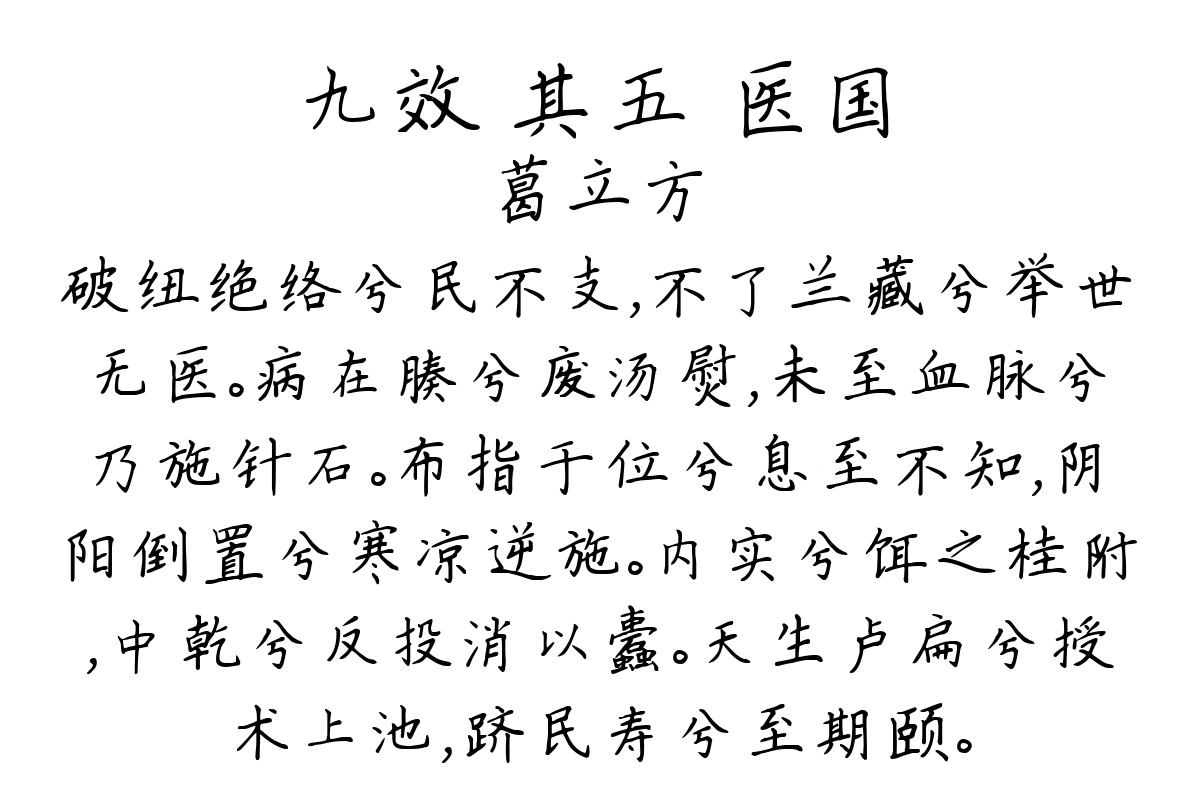 九效 其五 医国
葛立方
破纽绝络兮民不支,不了兰藏兮举世
无医。病在腠兮废汤熨,未至血脉兮
乃施针石。布指于位兮息至不知,阴
阳倒置兮寒凉逆施。内实兮饵之桂附
,中乾兮反投消以蠹。天生卢扁兮授
术上池,跻民寿兮至期颐。